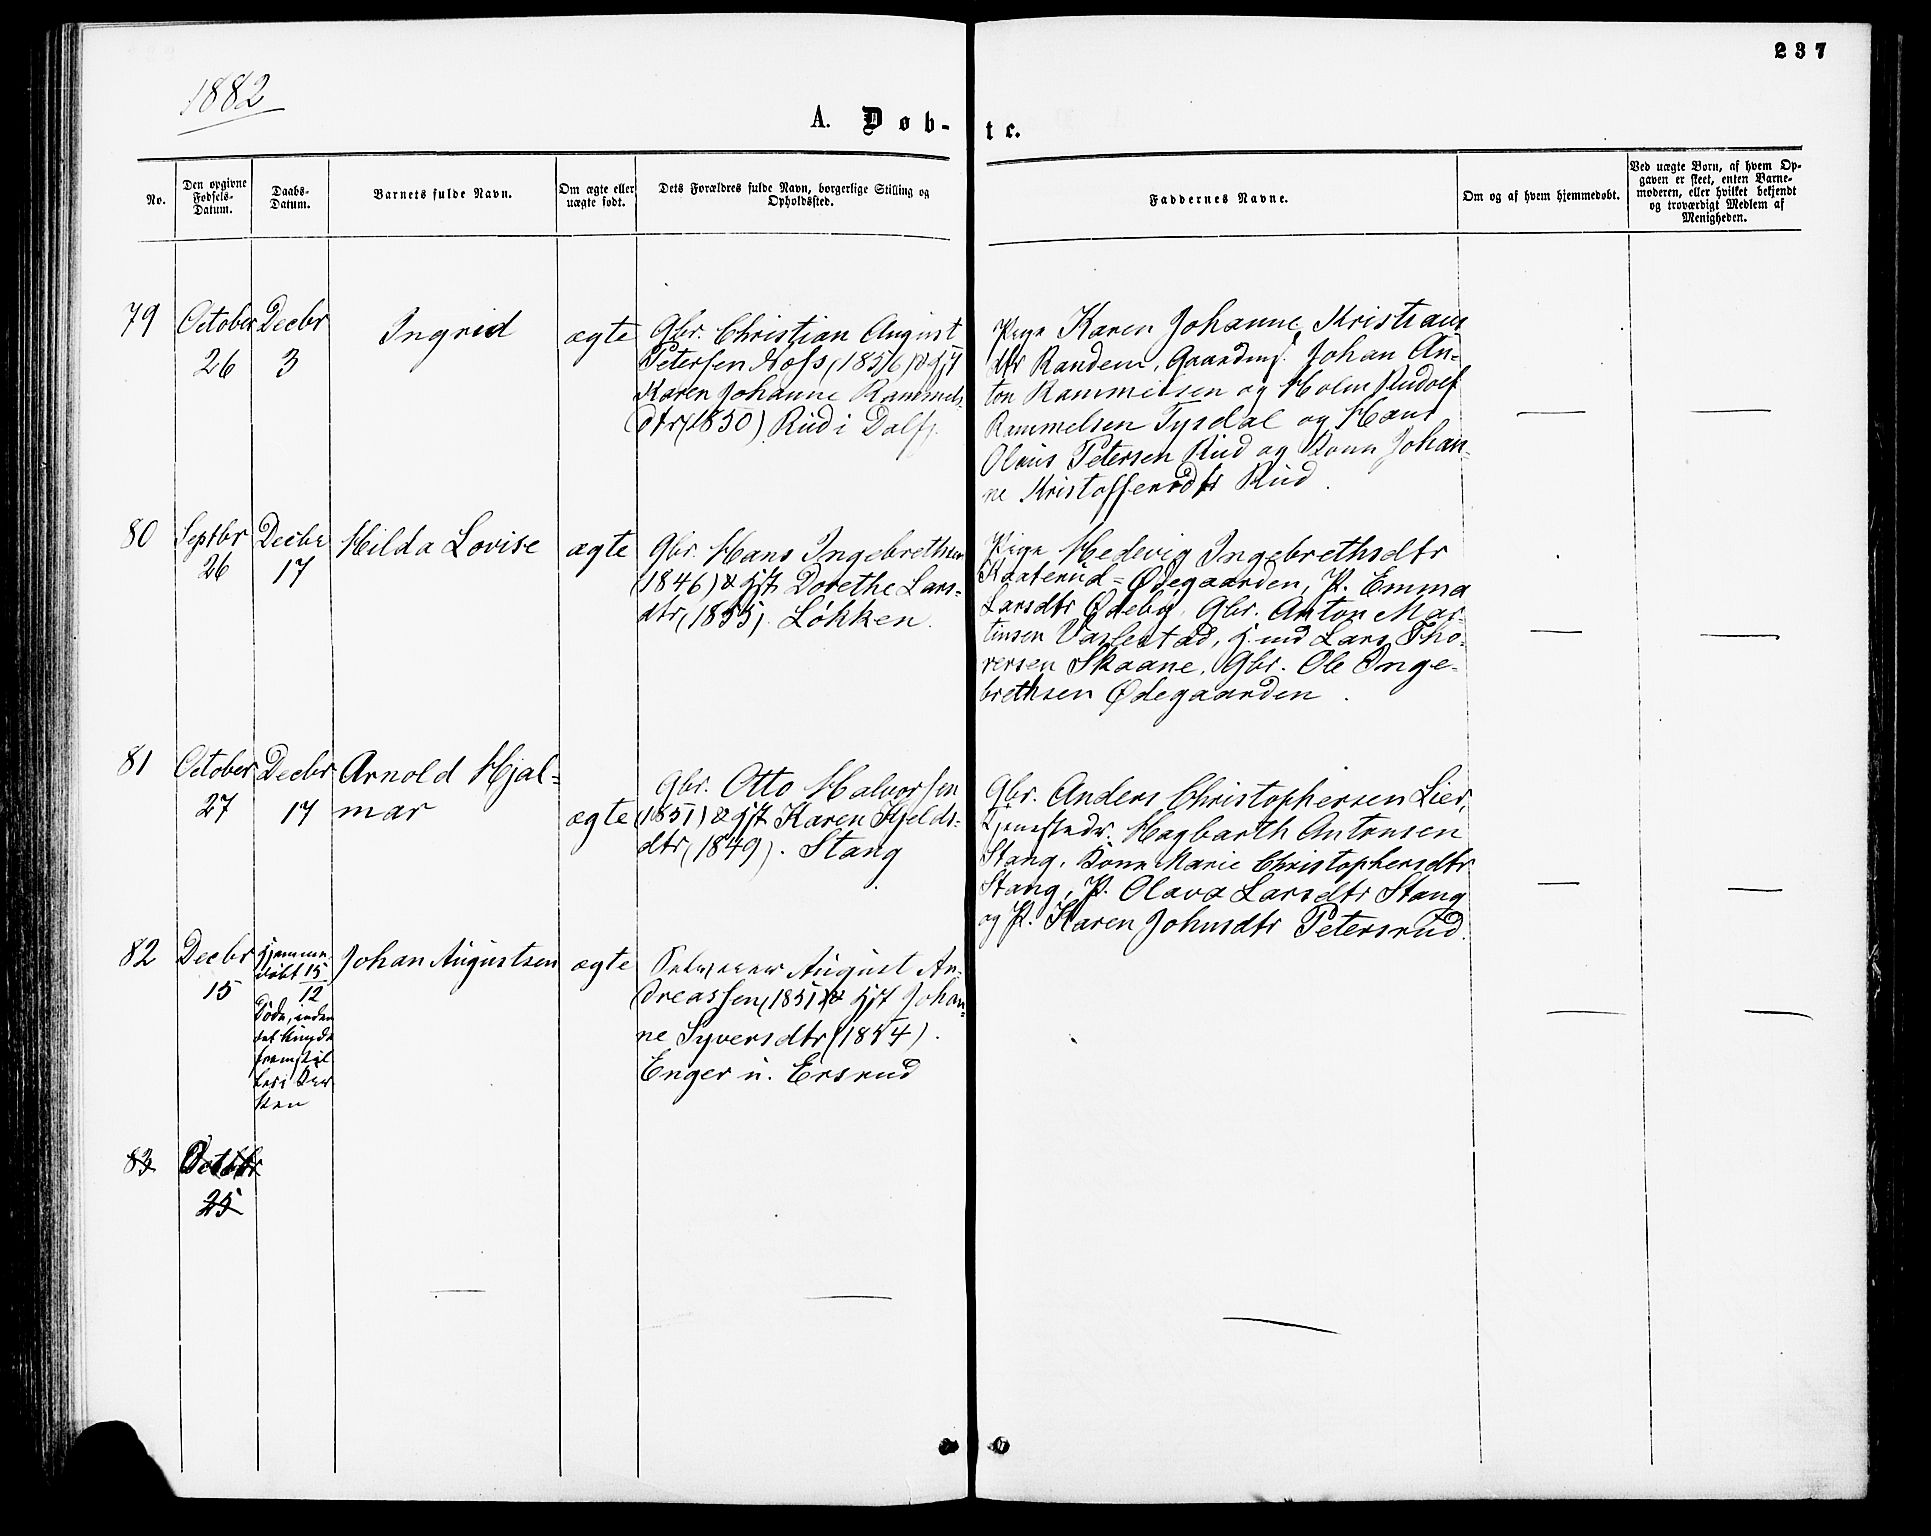 237
1882
A. Døb-te.
No.
Den opgivne
Fødsels-
Datum.
Daabs-
Datum.
Barnets fulde Navn.
Om ægte eller
uægte født.
Dets Forældres fulde Navn, borgerlige Stilling og
Opholdssted.
Faddernes Navne.
Om og af hvem hjemmedøbt.
Ved uægte Børn, af hvem Op-
gaven er skeet, enten Barne-
moderen, eller hvilket bekjendt
og troværdigt Medlem af
Menigheden.
79
October
26
Decbr
3
Ingrid
ægte
Gbr. Christian August
Petersen Moss, (1856) & Hst
Karen Johanne Rammels-
dtr (1850) Rud i
Pige Karen Johanne Kristians
dtr Randem, Gaardm. Johan An-
ton Rammelsen og Holm Rudolf
Rammelsen Tysdal og Hans
Olaus Petersen Rud og Kone Johan-
ne Kristoffersdtr Rud.
80
Septbr
26
Decbr
17
Hilda Lovise
ægte
Gbr. Hans Ingebrethsen
(1846) & Hst. Dorethe Lars-
dtr, (1855). Løkken.
Pige Hedevig Ingebrethsdtr
Kaaterud-Ødegaarden, P. Emma
Larsdtr Ødeby, Gbr. Anton Mar-
tinsen Varlestad, Lars Tho-
rersen Skaane, Gbr. Ole Inge-
brethsen Ødegaarden.
81
October
27
Decbr
17
Arnold Hjal-
mar
ægte
Gbr. Otto Halvorsen
(1851) & Hst Karen Kjelds-
dtr, (1849). Stang
Gbr. Anders Christophersen Lier,
Hagbarth Antonsen
Stang, Kone Marie Christophersdtr
Stang, P. Olava Larsdtr Stang
og P. Karen Johnsdtr Petersrud.
82
Decbr
15
hjemme-
døbt 15
12
Døde, inden
det kunde
fremstil
les i Kir-
ken
Johan Augustsen
ægte
August An-
dreassen, (1851) & Hst Johan-
ne Syversdtr (1854).
Enger u. Ersrud
83
Octobr
25